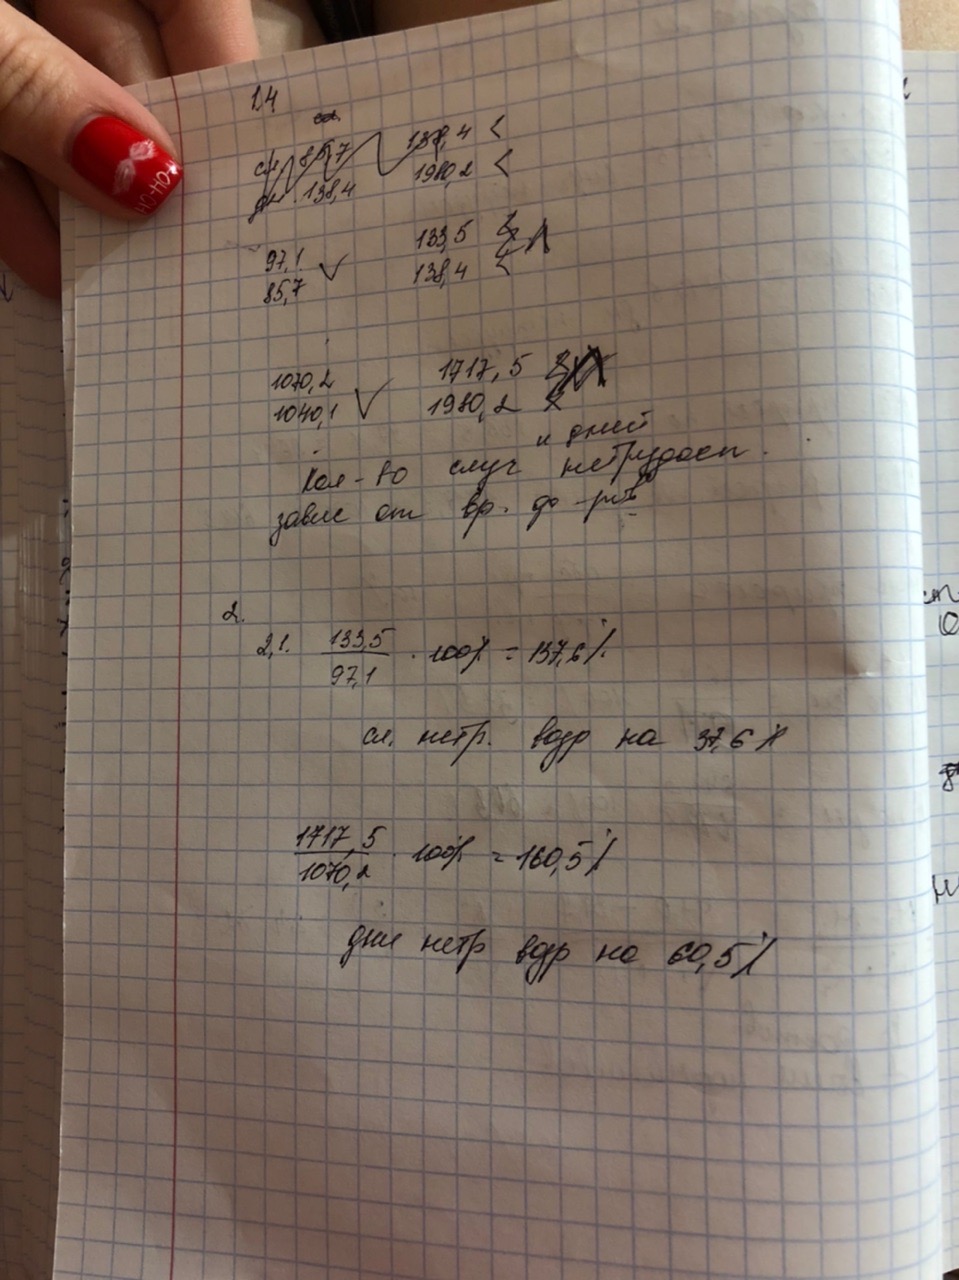 1.4
сл 85,7 138,4 <
дн. 138,4 1980,2 <
97,1 133,5
85,7 138,4 <
1070,2 1717,5
1040,1 1980,2
и дней
Кол-во случ нетрудосп.
завис от вр. до р-ты
2.
2,1. 133,5
97,1 · 100% = 137,6%
сл. нетр. возр на 37,6%
1717,5
1070,2 · 100% = 160,5%
дни нетр возр на 60,5%